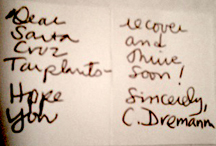 Dear
Santa
Cruz
Tarplants-
Hope
You
recover
and
thrive
soon!
Sincerely,
C. Dremann